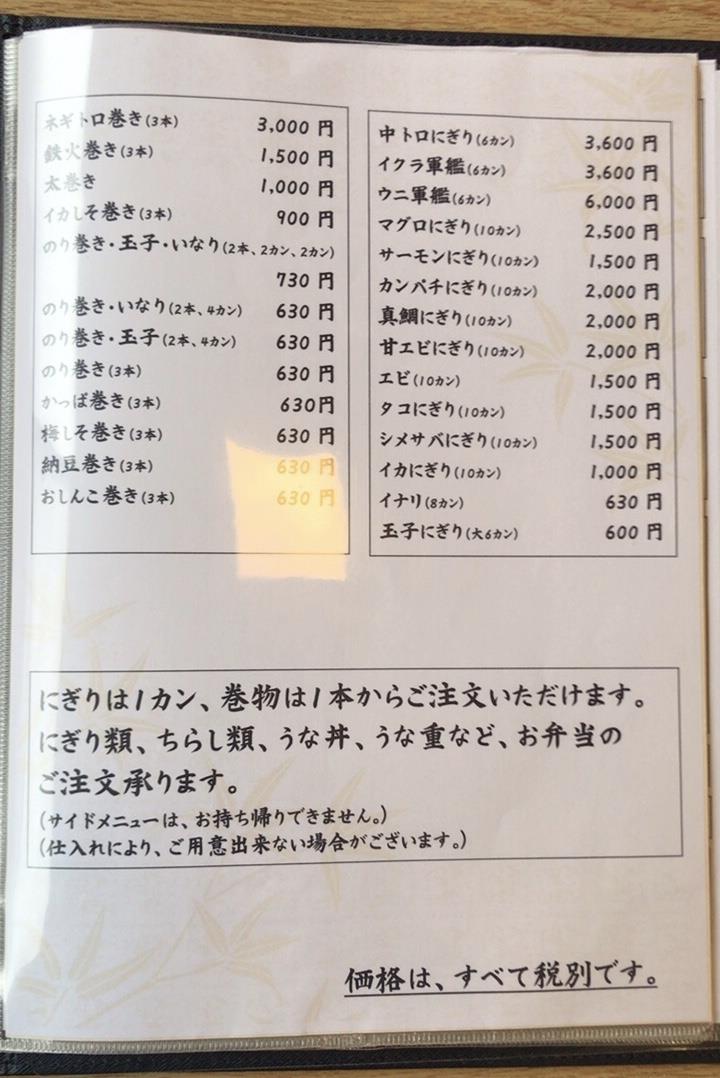 ネギトロ巻き(3本) 3,000 円
鉄火巻き(3本) 1,500 円
太巻き 1,000 円
イカしそ巻き(3本) 900 円
のり巻き・玉子・いなり(2本、2カン、2カン)
730 円
のり巻き・いなり(2本、4カン) 630 円
のり巻き・玉子(2本、4カン) 630 円
のり巻き(3本) 630 円
かっぱ巻き(3本) 630円
梅しそ巻き(3本) 630 円
納豆巻き(3本) 630 円
おしんこ巻き(3本) 630 円
中トロにぎり(6カン) 3,600 円
イクラ軍艦(6カン) 3,600 円
ウニ軍艦(6カン) 6,000 円
マグロにぎり(10カン) 2,500 円
サーモンにぎり(10カン) 1,500 円
カンパチにぎり(10カン) 2,000 円
真鯛にぎり(10カン) 2,000 円
甘エビにぎり(10カン) 2,000 円
エビ(10カン) 1,500 円
タコにぎり(10カン) 1,500 円
シメサバにぎり(10カン) 1,500 円
イカにぎり(10カン) 1,000 円
イナリ(8カン) 630 円
玉子にぎり(大6カン) 600 円
にぎりは1カン、巻物は1本からご注文いただけます。
にぎり類、ちらし類、うな丼、うな重など、お弁当の
ご注文承ります。
(サイドメニューは、お持ち帰りできません。)
(仕入れにより、ご用意出来ない場合がございます。)
価格は、すべて税別です。